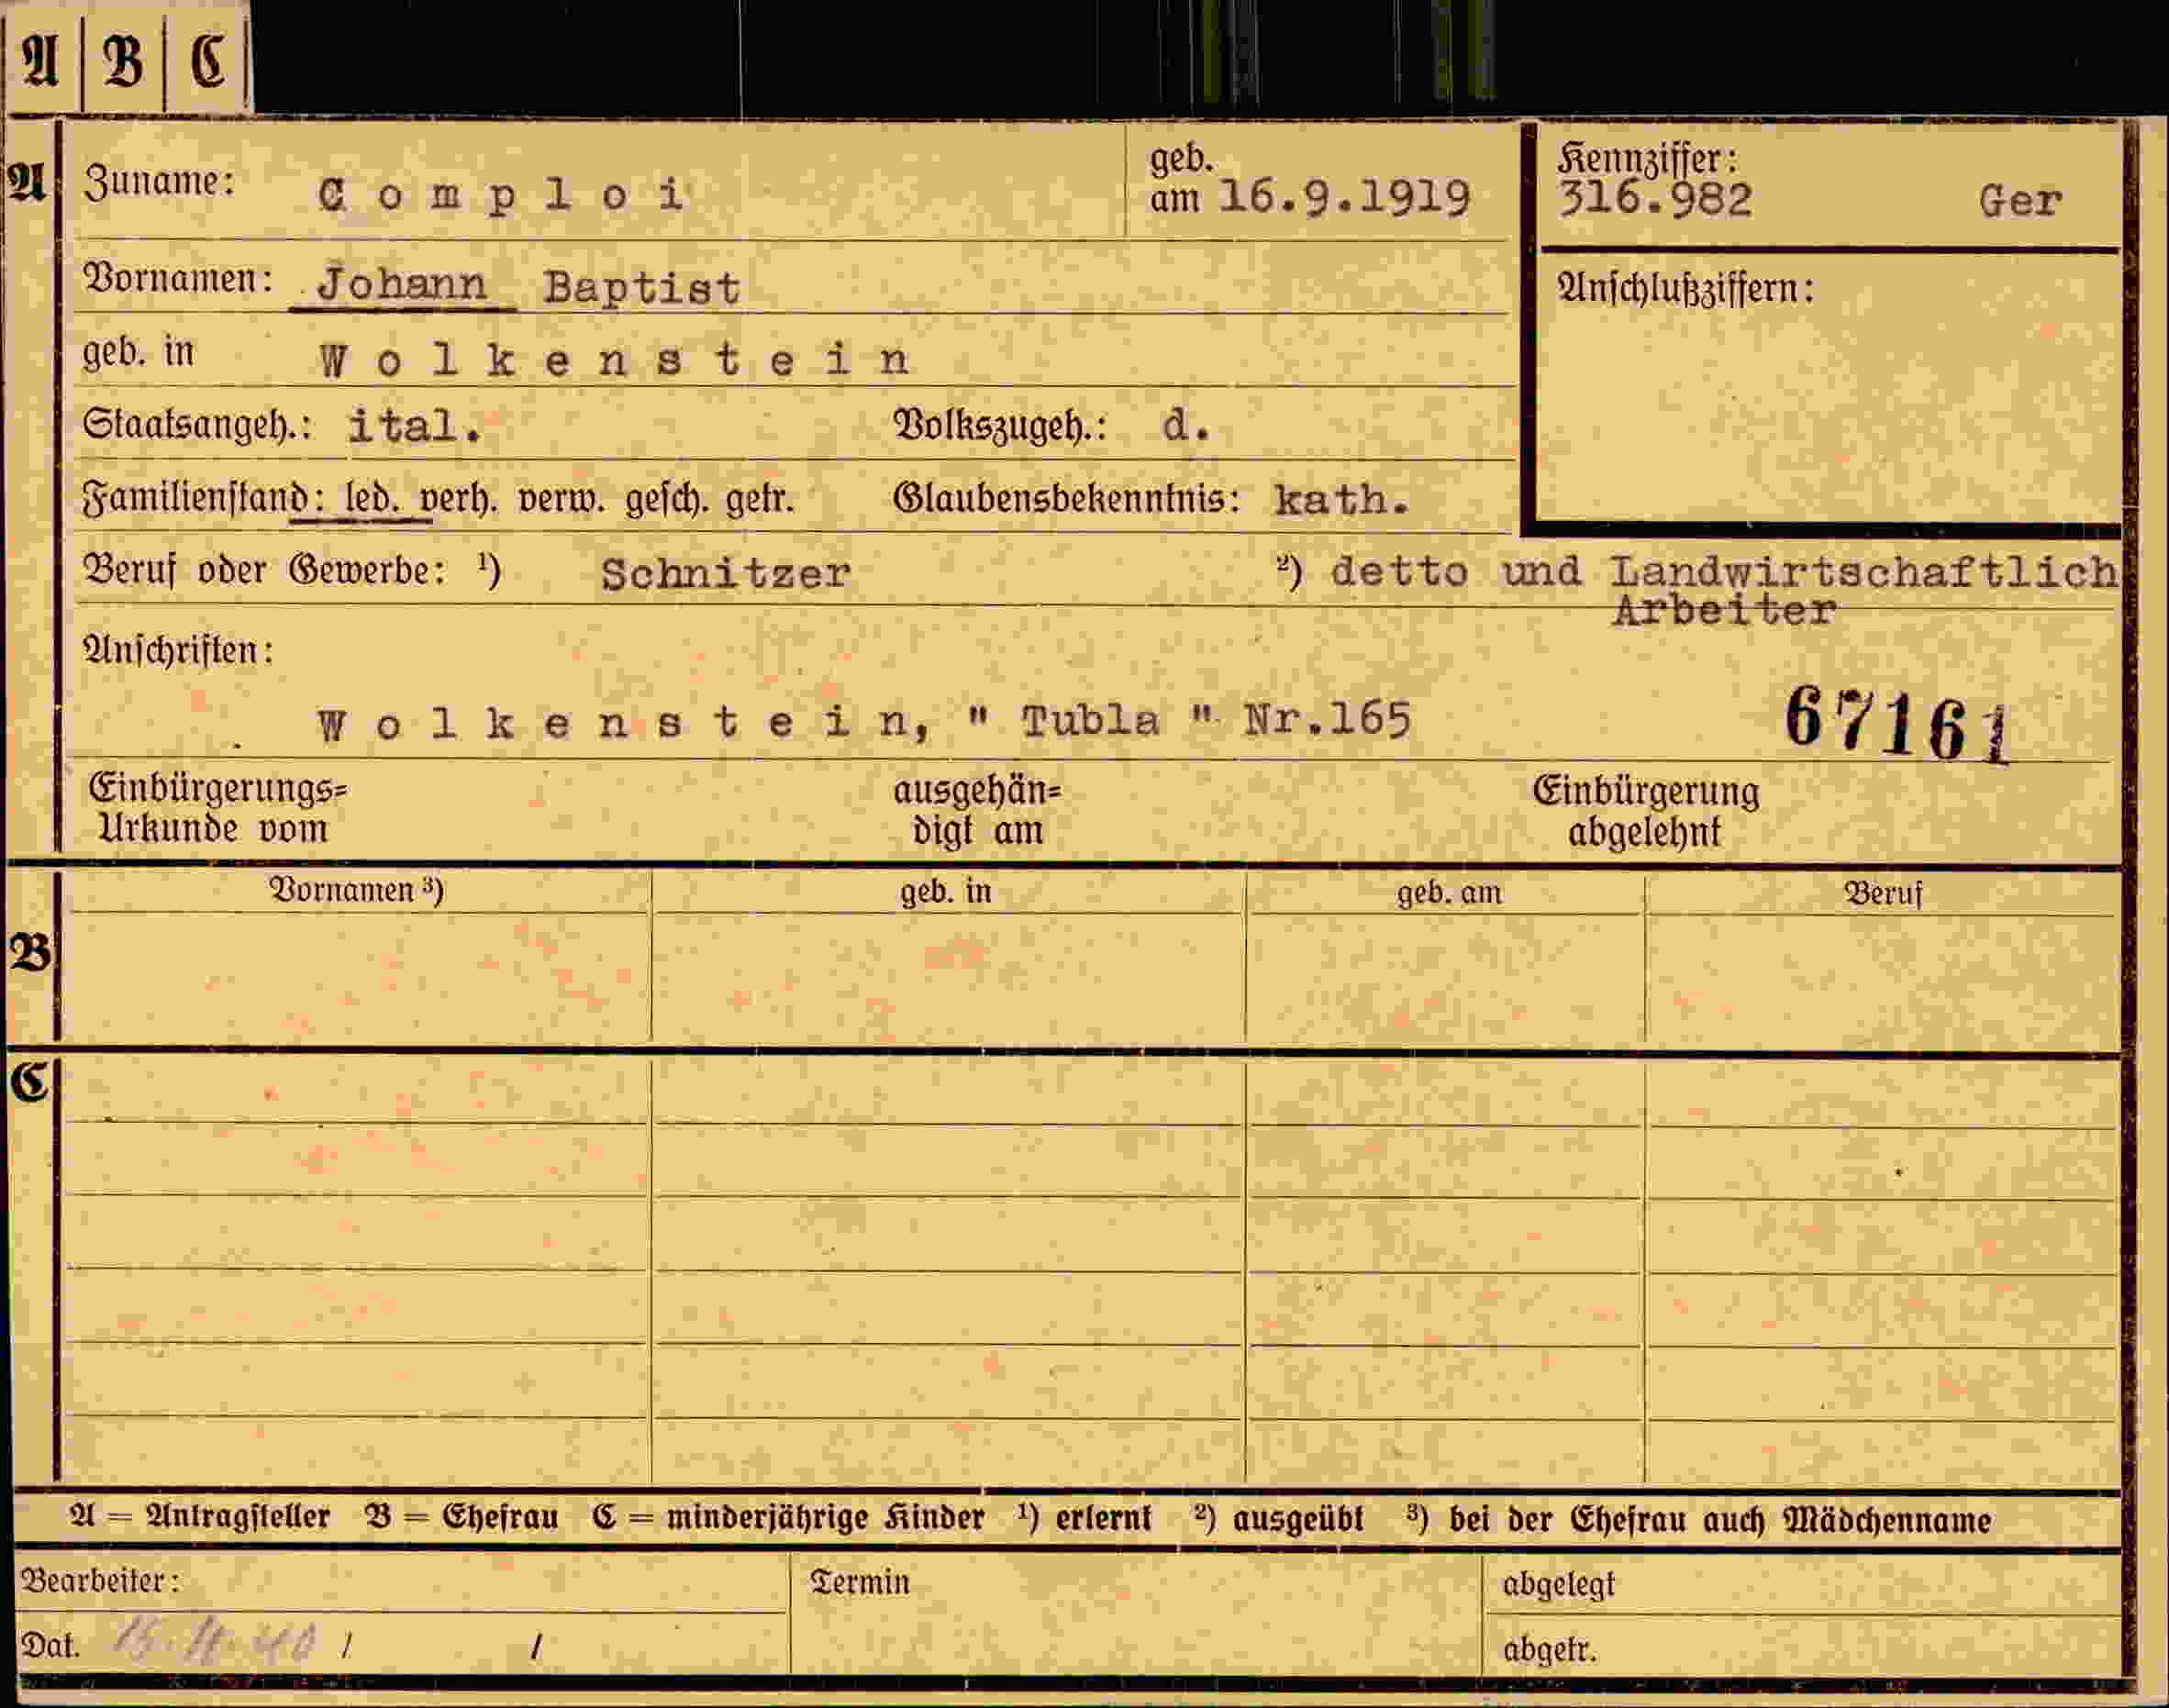 A B C
A Zuname: Comploi geb. am 16.9.1919 Kennziffer: 316.982 Ger
Vornamen: Johann Baptist Anschlußziffern:
geb. in Wolkenstein
Staatsangeh.: ital. Volkszugeh.: d.
Familienstand: led. verh. verw. gesch. getr. Glaubensbekenntnis: kath.
Beruf oder Gewerbe: ¹) Schnitzer ²) detto und Landwirtschaftlich
Arbeiter
Anschriften:
Wolkenstein, " Tubla " Nr.165 67161
Einbürgerungs= ausgehän= Einbürgerung
Urkunde vom digt am abgelehnt
Vornamen ³) geb. in geb. am Beruf
B
C
A = Antragsteller B = Ehefrau C = minderjährige Kinder ¹) erlernt ²) ausgeübt ³) bei der Ehefrau auch Mädchenname
Bearbeiter: Termin abgelegt
Dat. / / abgetr.